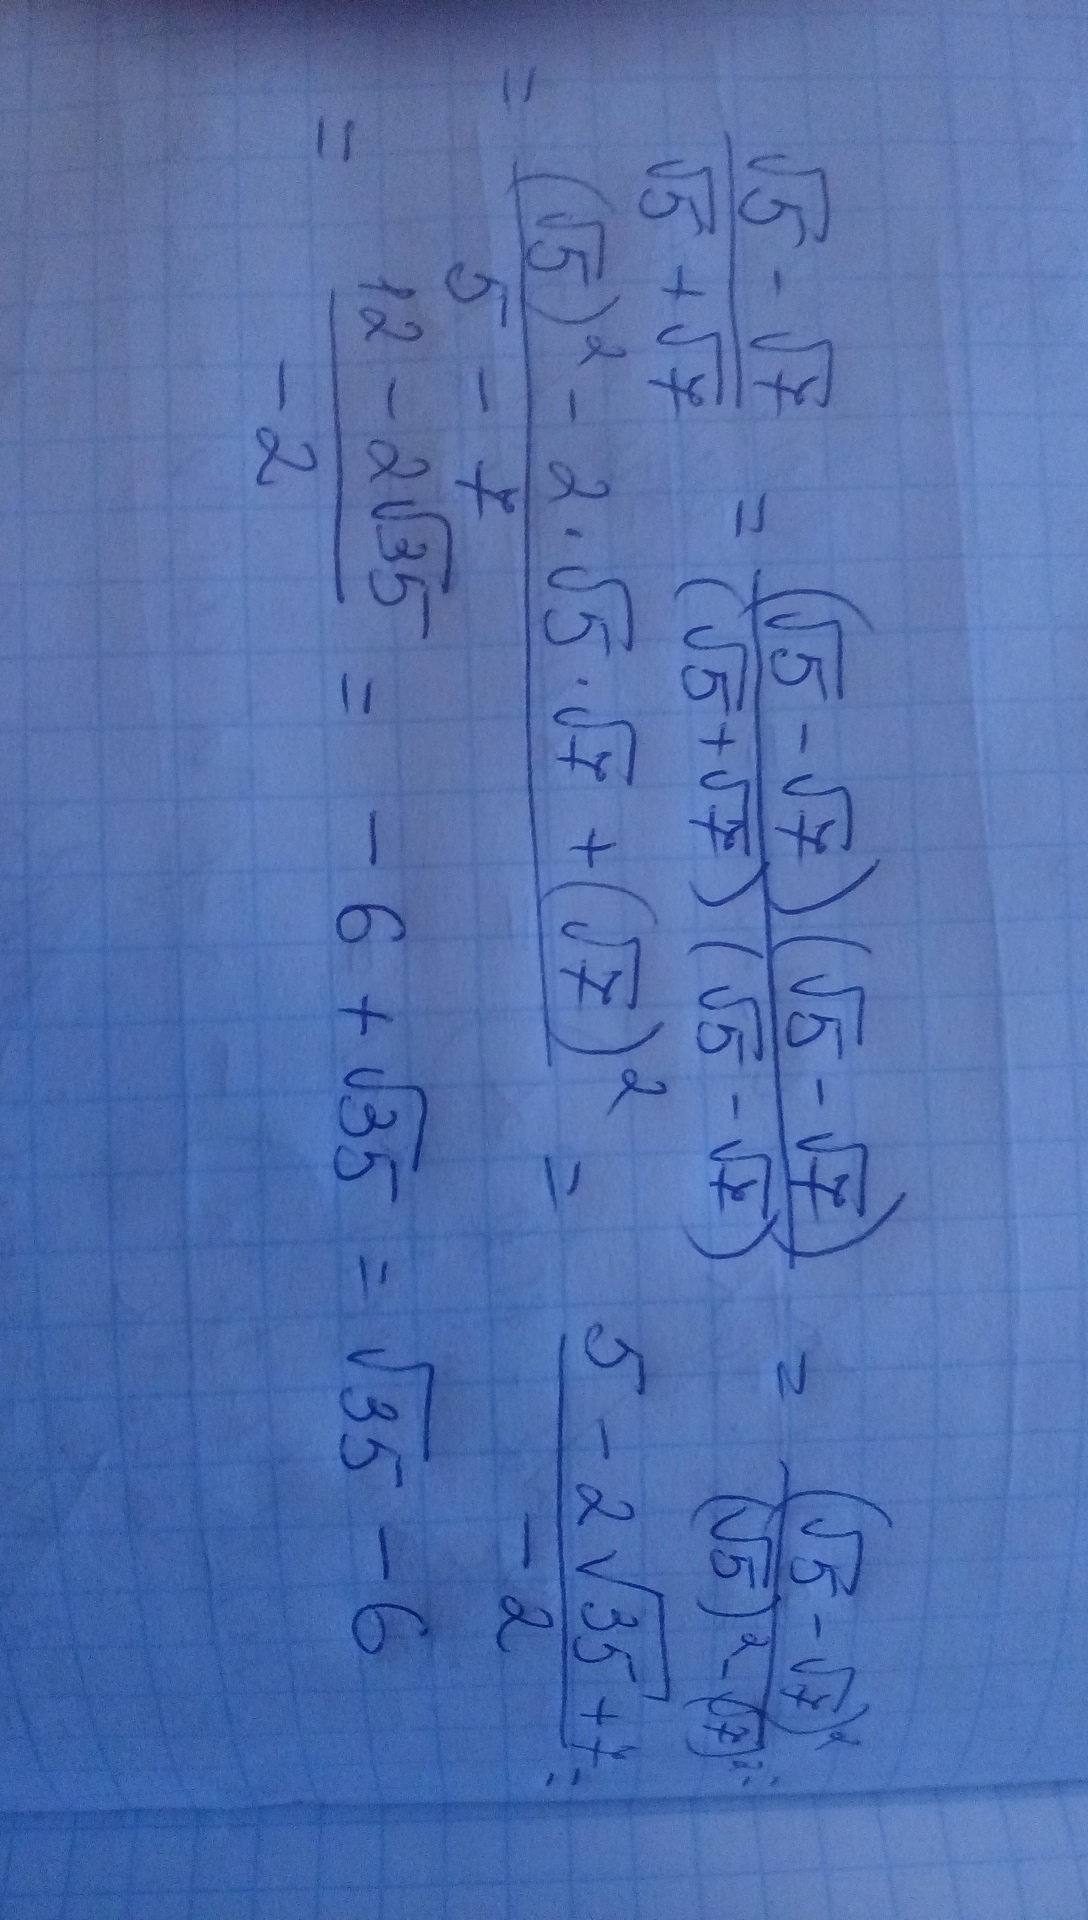 (√5 - √7)/(√5 + √7) = ((√5 - √7)(√5 - √7))/((√5 + √7)(√5 - √7)) = (√5 - √7)²/((√5)² - (√7)²) =
= ((√5)² - 2·√5·√7 + (√7)²)/(5 - 7) = (5 - 2√35 + 7)/(-2) =
= (12 - 2√35)/(-2) = - 6 + √35 = √35 - 6